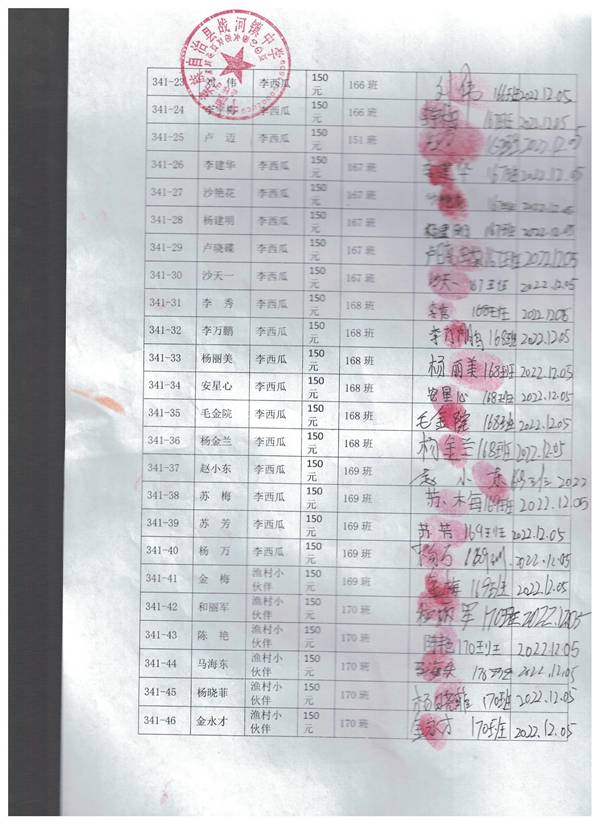 族自治县战河镇中学
341-23 伟 李西瓜 150元 166 班 伟 166班 2022.12.05
341-24 李西瓜 150元 166 班 2022.12.05
341-25 卢 迈 李西瓜 150元 151 班 2022.12.05
341-26 李建华 李西瓜 150元 167 班 李建华 167班 2022.12.05
341-27 沙艳花 李西瓜 150元 167 班 2022.12.05
341-28 杨建明 李西瓜 150元 167 班 杨建明 167班 2022.12.05
341-29 卢晓碟 李西瓜 150元 167 班 2022.12.05
341-30 沙天一 李西瓜 150元 167 班 沙天一 167班 2022.12.05
341-31 李 秀 李西瓜 150元 168 班 李秀 168班 2022.12.05
341-32 李万鹏 李西瓜 150元 168 班 李万鹏 168班 2022.12.05
341-33 杨丽美 李西瓜 150元 168 班 杨丽美 168班 2022.12.05
341-34 安星心 李西瓜 150元 168 班 安星心 168班 2022.12.05
341-35 毛金院 李西瓜 150元 168 班 毛金院 168班 2022.12.05
341-36 杨金兰 李西瓜 150元 168 班 杨金兰 168班 2022.12.05
341-37 赵小东 李西瓜 150元 169 班 赵小东 2022
341-38 苏 梅 李西瓜 150元 169 班 苏梅 169班 2022.12.05
341-39 苏 芳 李西瓜 150元 169 班 苏芳 169班 2022.12.05
341-40 杨 万 李西瓜 150元 169 班 杨万 169 2022.12.05
341-41 金 梅 渔村小伙伴 150元 169 班 金梅 169班 2022.12.05
341-42 和丽军 渔村小伙伴 150元 170 班 和丽军 170班 2022.12.05
341-43 陈 艳 渔村小伙伴 150元 170 班 陈艳 170班 2022.12.05
341-44 马海东 渔村小伙伴 150元 170 班 马海东 170班 2022.12.05
341-45 杨晓菲 渔村小伙伴 150元 170 班 杨晓菲 170班 2022.12.05
341-46 金永才 渔村小伙伴 150元 170 班 金永才 170班 2022.12.05